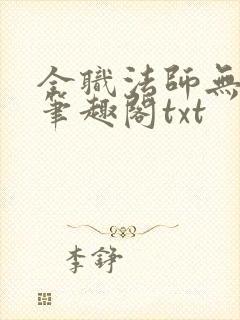 全職法師無
筆趣閣txt
李錚